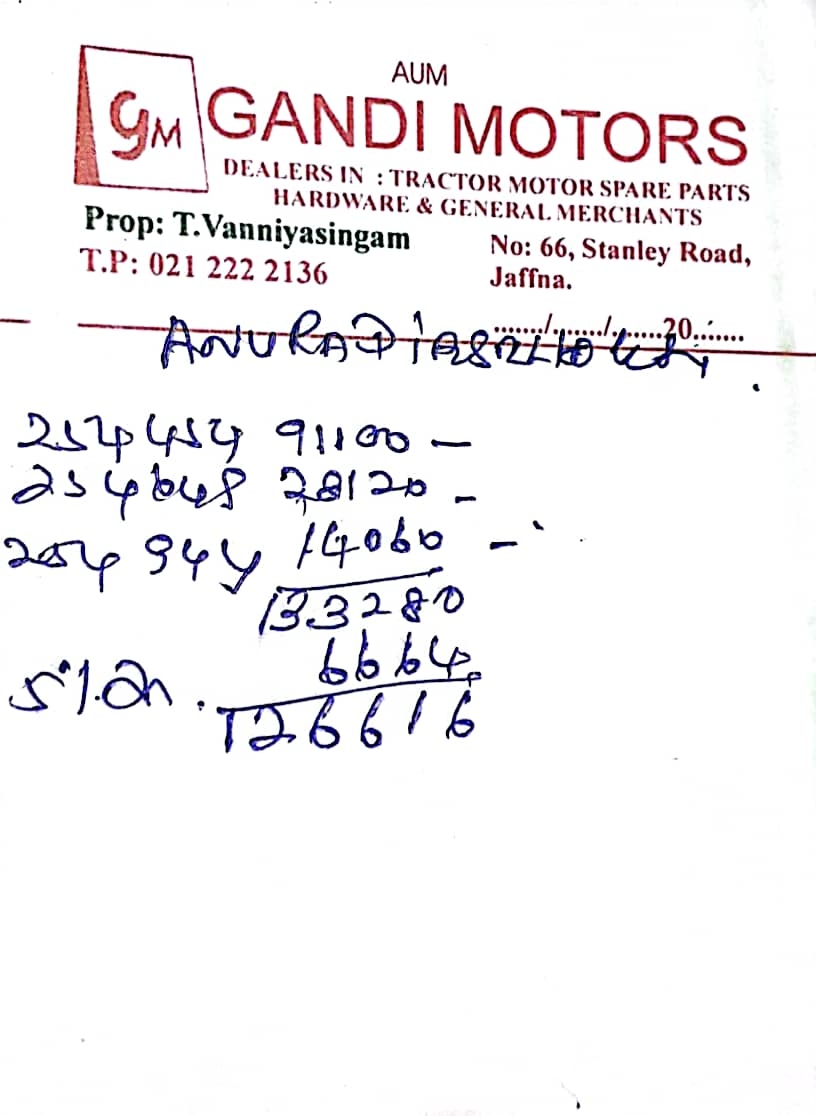 AUM
GM GANDI MOTORS
DEALERS IN : TRACTOR MOTOR SPARE PARTS
HARDWARE & GENERAL MERCHANTS
Prop: T.Vanniyasingam
T.P: 021 222 2136
No: 66, Stanley Road,
Jaffna.
......./......./.......20.......
254454 91100 -
254648 28120 -
254944 14060 -
133280
6664
5%
126616